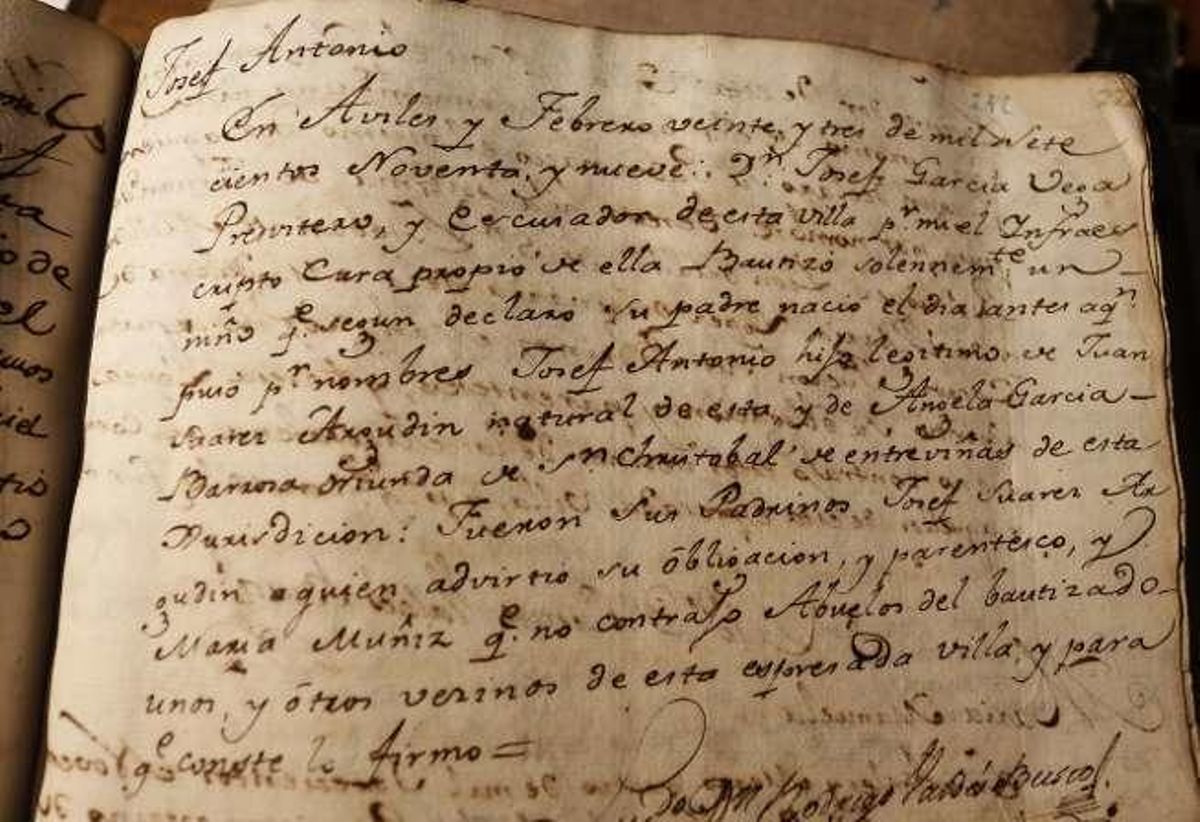 Josef Antonio
En Aviles y Febrero veinte, y tres de mil sete
cientos Noventa, y nueve: Dn. Josef Garcia Vega
Presvitero, y Escusador de esta villa pr. mi el Ynfraes
cripto Cura propio de ella Bautizó solennemte. un
niño qe. segun declaro su padre nació el dia antes aqn.
puso pr. nombres Josef Antonio hijo legitimo de Juan
Suarez Argudin natural de esta, y de Angela Garcia
Barrosa oriunda de Sn Christobal de entreviñas de esta
Jurisdicion: Fueron sus Padrinos Josef Suarez Ar
gudin a quien advirtió su óbligacion, y parentesco, y
Maria Muñiz qe. no contrajo Abuelos del bautizado
unos, y ótros vezinos de esta espresada villa, y para
qe conste lo firmo =
Rodrigo